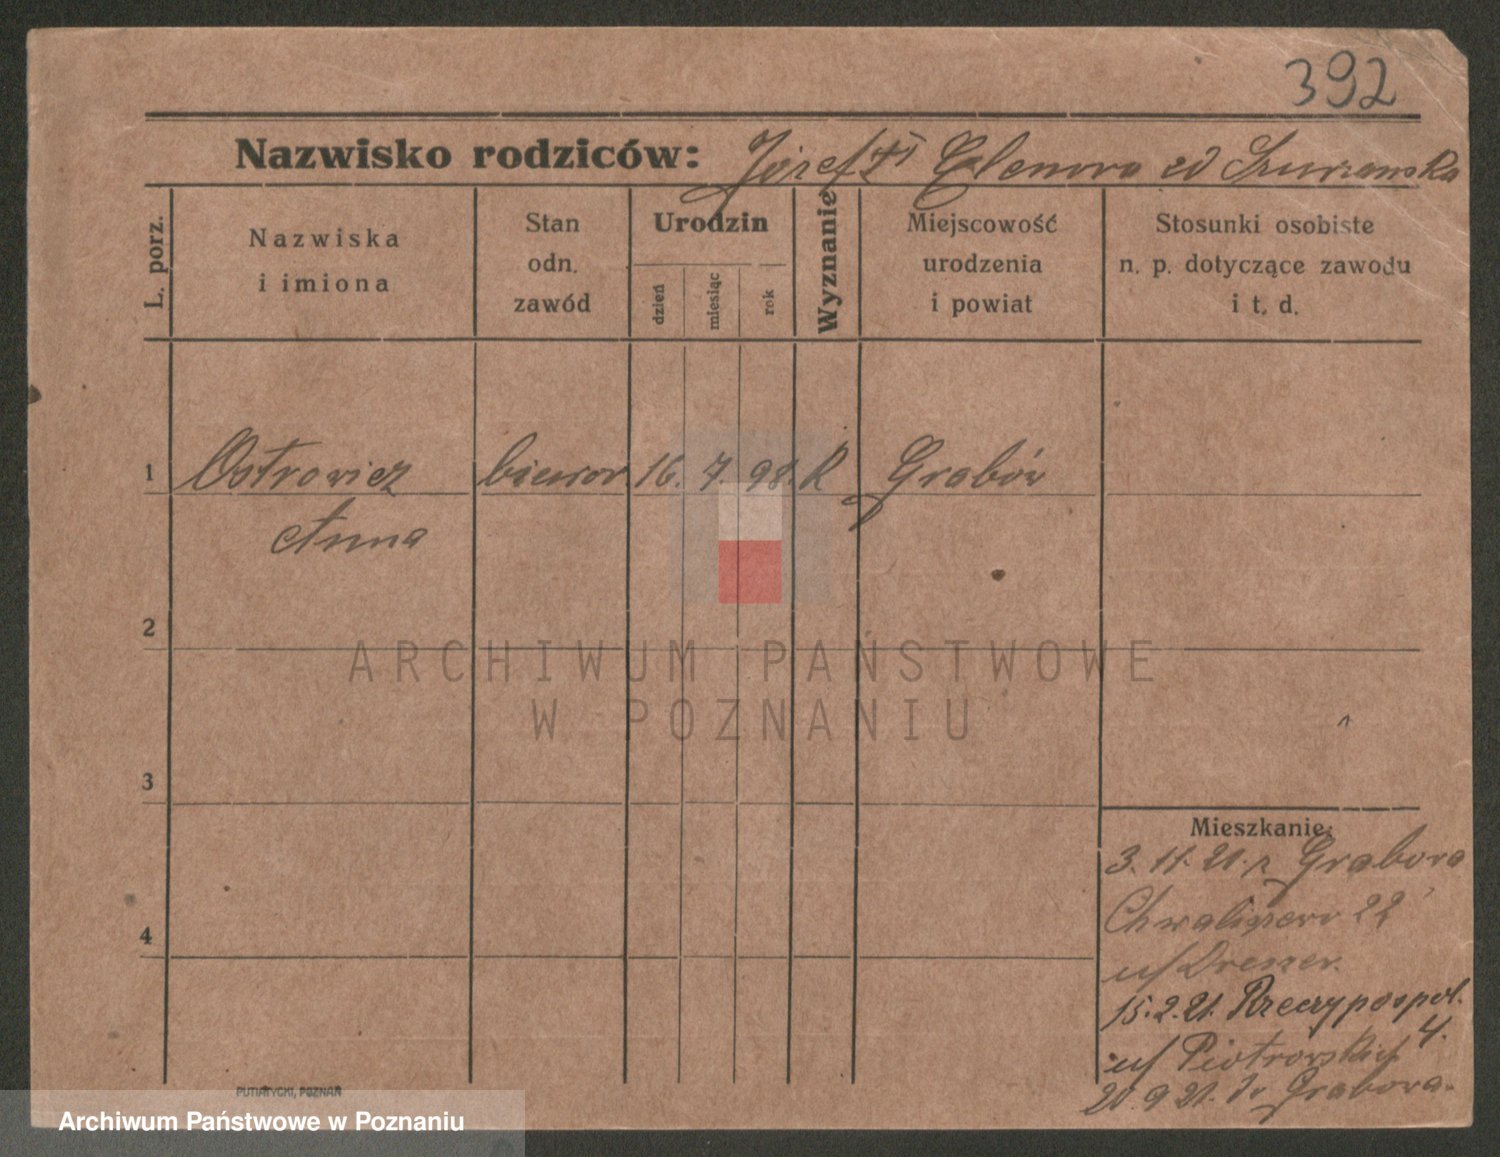 392
Nazwisko rodziców: Józef Elenora zd Szurzanska
L. porz.
Nazwiska i imiona
Stan odn. zawód
Urodzin
dzień
miesiąc
rok
Wyznanie
Miejscowość urodzenia i powiat
Stosunki osobiste n. p. dotyczące zawodu i t. d.
1 Ostrowicz biuror. 16. 7. 98. R Grabów
Anna
2
3
4
Mieszkanie:
3. 11. 21. z Grabowa
Chwaliszewo 22
u/ Drezer.
15. 2. 21. Rzeczypospol.
4.
u/ Piotrowskich
20. 9. 21. do Grabowa.
PUTIATYCKI, POZNAŃ
ARCHIWUM PAŃSTWOWE
W POZNANIU
Archiwum Państwowe w Poznaniu